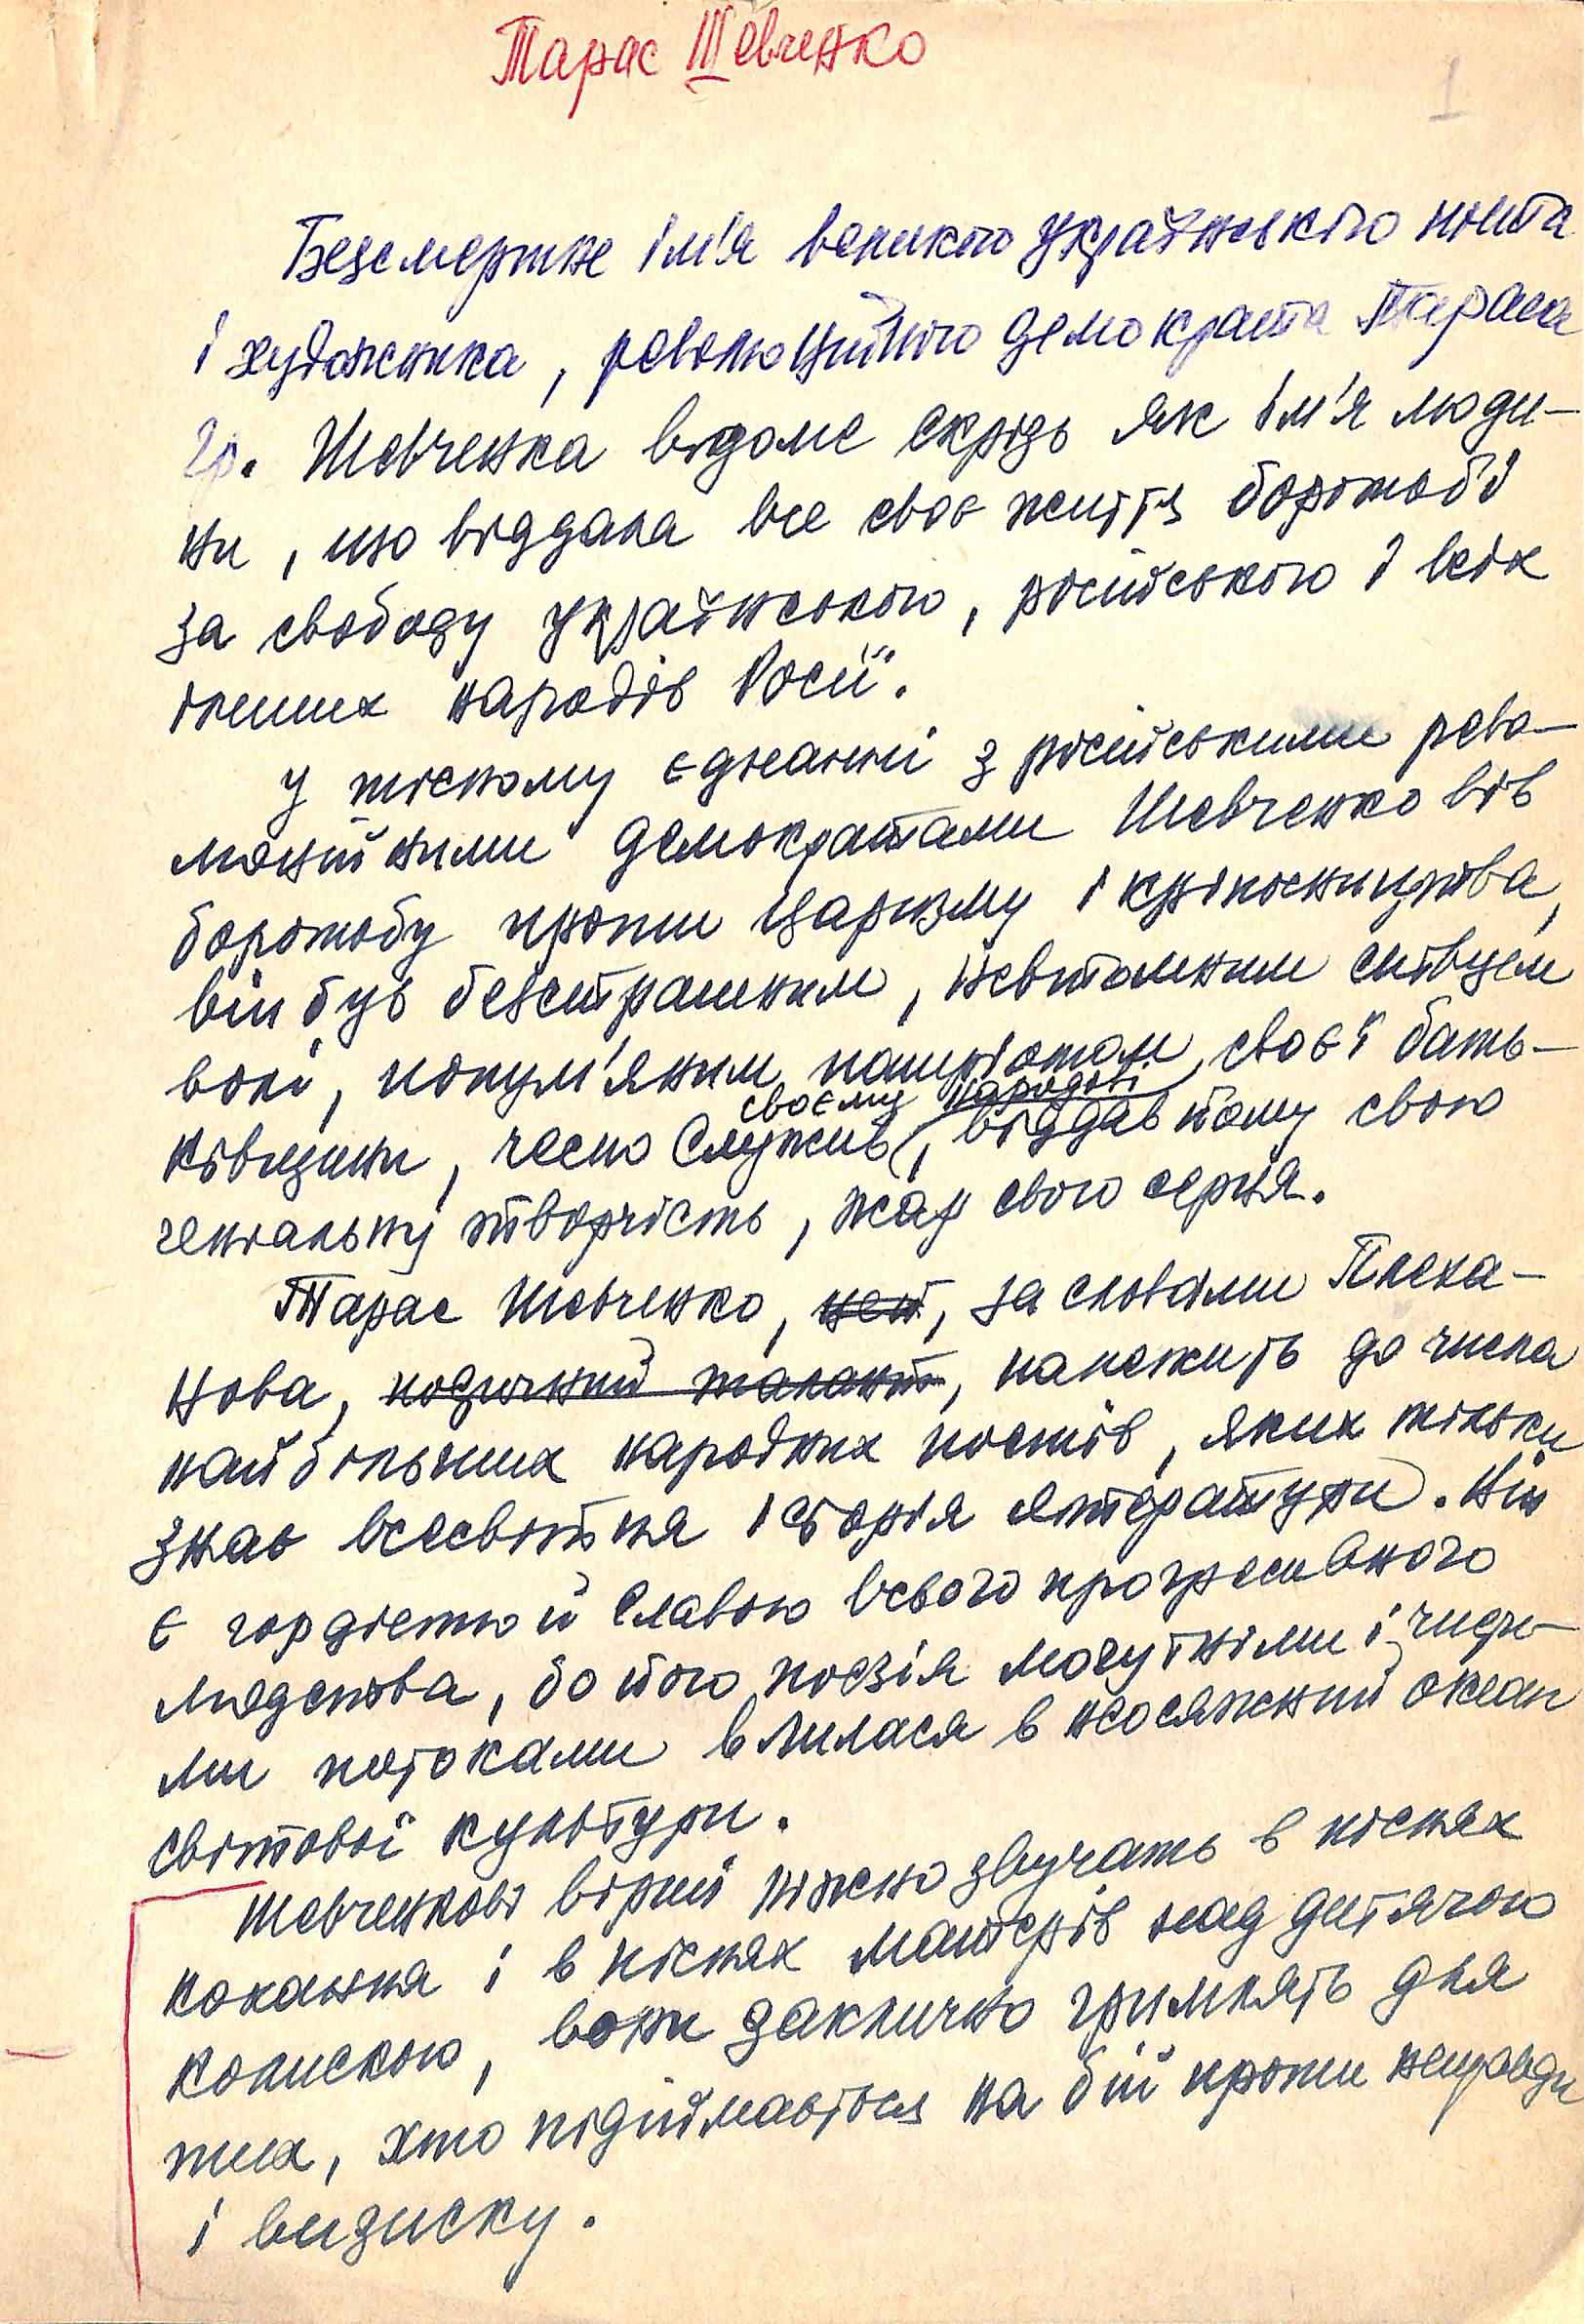 Тарас Шевченко
1
Безсмертне ім'я великого українського поета
і художника, революційного демократа Тараса
Гр. Шевченка відоме скрізь як ім'я люди-
ни, що віддала все своє життя боротьбі
за свободу українського, російського і всіх
інших народів Росії.
У тісному єднанні з російськими рево-
люційними демократами Шевченко вів
боротьбу проти царизму і кріпосництва,
він був безстрашним, невтомним співцем
волі, полум'яним патріотом своєї бать-
своєму народові
ківщини, чесно служив, віддав йому свою
геніальну творчість, жар свого серця.
Тарас Шевченко, цей, за словами Плеха-
нова, поетичний талант, належить до числа
найбільших народних поетів, яких тільки
знає всесвітня історія літератури. Він
є гордістю й славою всього прогресивного
людства, бо його поезія могутніми і чисти-
ми потоками влилася в неосяжний океан
світової культури.
Шевченкові вірші ніжно звучать в піснях
кохання і в піснях матерів над дитячою
колискою, вони заклично гримлять для
тих, хто підіймається на бій проти неправди
і визиску.